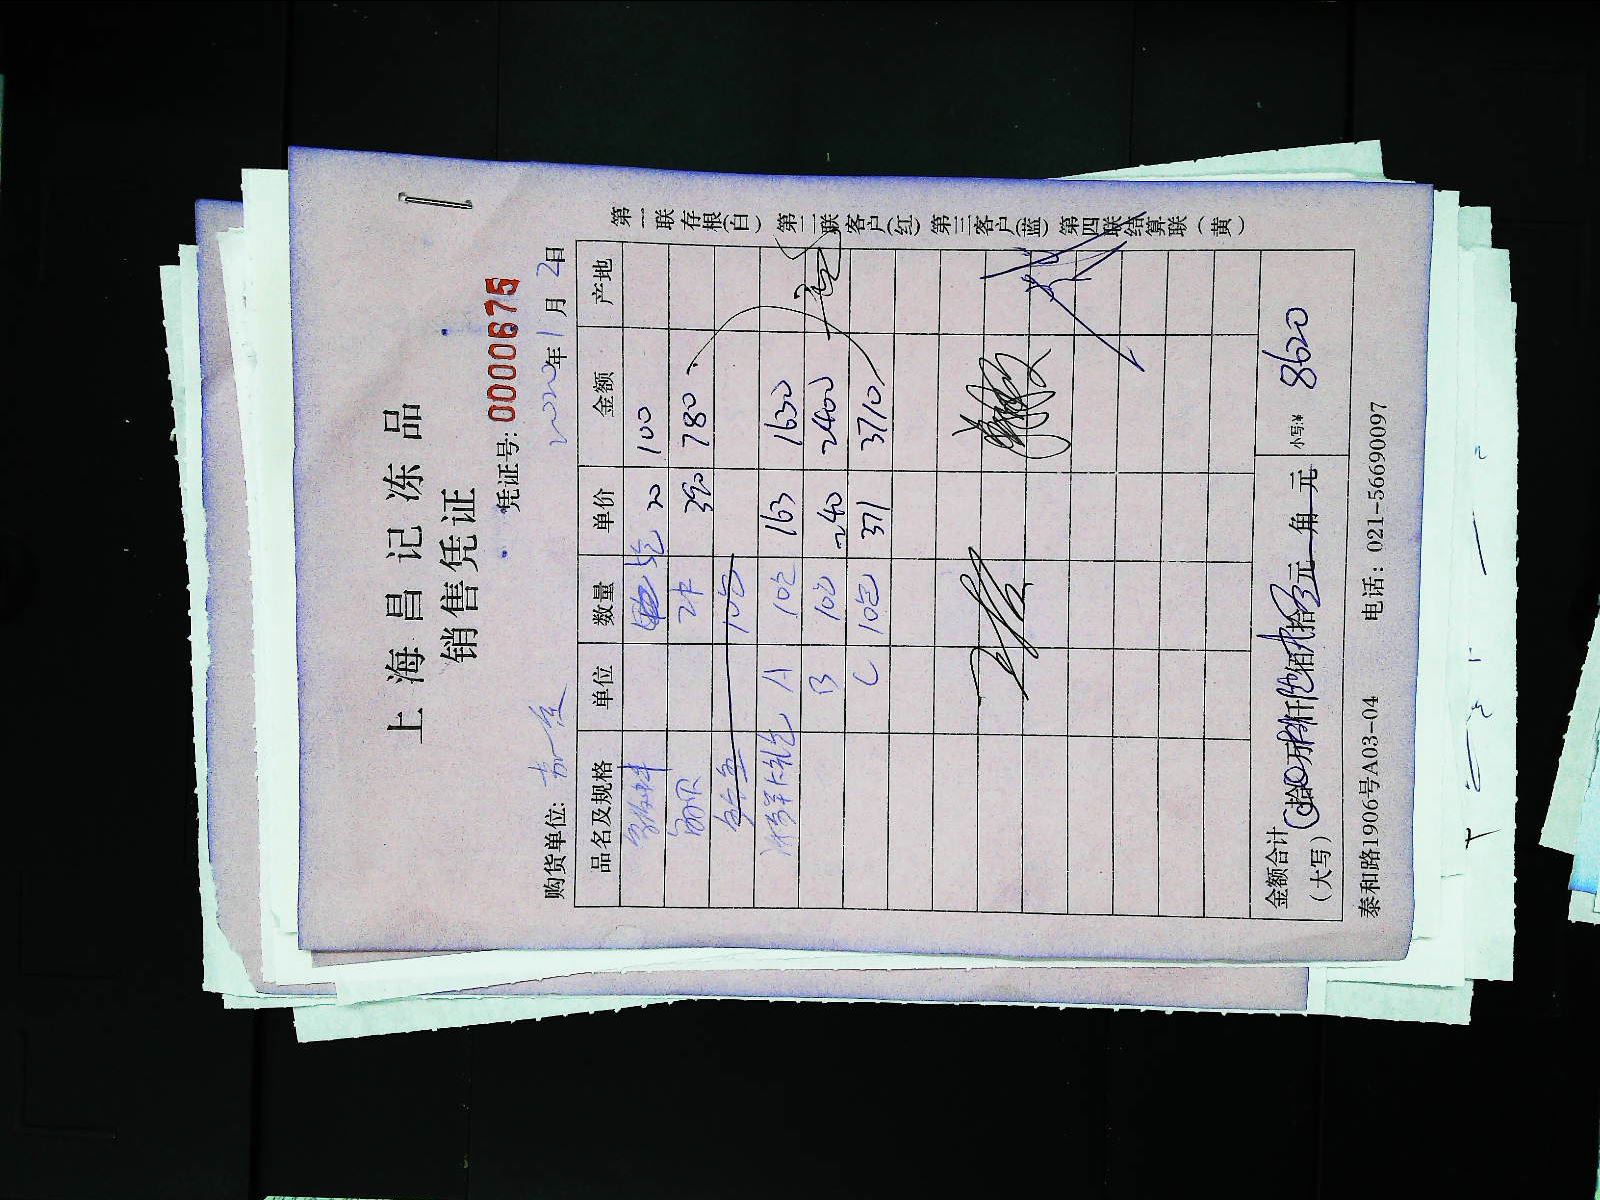 上海昌记冻品
销售凭证
凭证号: 0000675
购货单位: 2020年1月2日
品名及规格 单位 数量 单价 金额 产地
5包 20 100
390 780
10包
A 10包 163 1630
B 10包 240 2400
C 10包 371 3710
金额合计
(大写) 拾 万 仟 佰 拾 元 角 元 小写:¥ 8620
泰和路1906号A03-04 电话: 021-56690097
第一联存根(白) 第二联客户(红) 第三客户(蓝) 第四联结算联(黄)